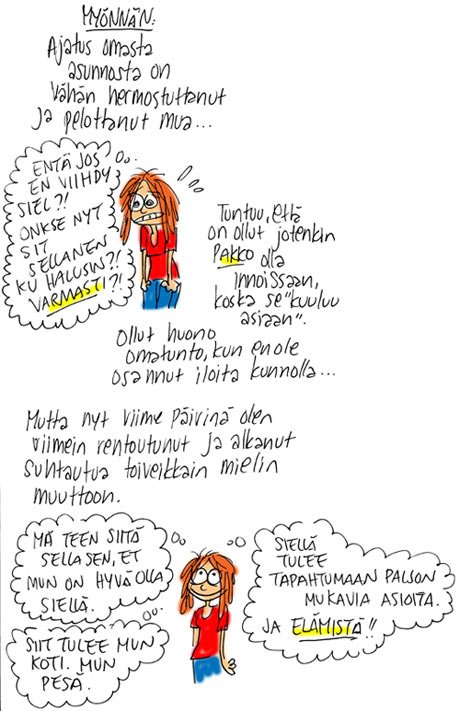 MYÖNNÄN:
Ajatus omasta
asunnosta on
vähän hermostuttanut
ja pelottanut mua...
ENTÄ JOS
EN VIIHDY
SIEL?!
ONKSE NYT
SIT
SELLANEN
KU HALUSIN?!
VARMASTI?!
Tuntuu, että
on ollut jotenkin
PAKKO olla
innoissaan,
koska se "kuuluu
asiaan".
Ollut huono
omatunto, kun en ole
osannut iloita kunnolla...
Mutta nyt viime päivinä olen
viimein rentoutunut ja alkanut
suhtautua toiveikkain mielin
muuttoon.
MÄ TEEN SIITÄ
SELLASEN, ET
MUN ON HYVÄ OLLA
SIELLÄ.
SIIT TULEE MUN
KOTI. MUN
PESÄ.
SIELLÄ
TULEE
TAPAHTUMAAN PALJON
MUKAVIA ASIOITA.
JA ELÄMISTÄ!!